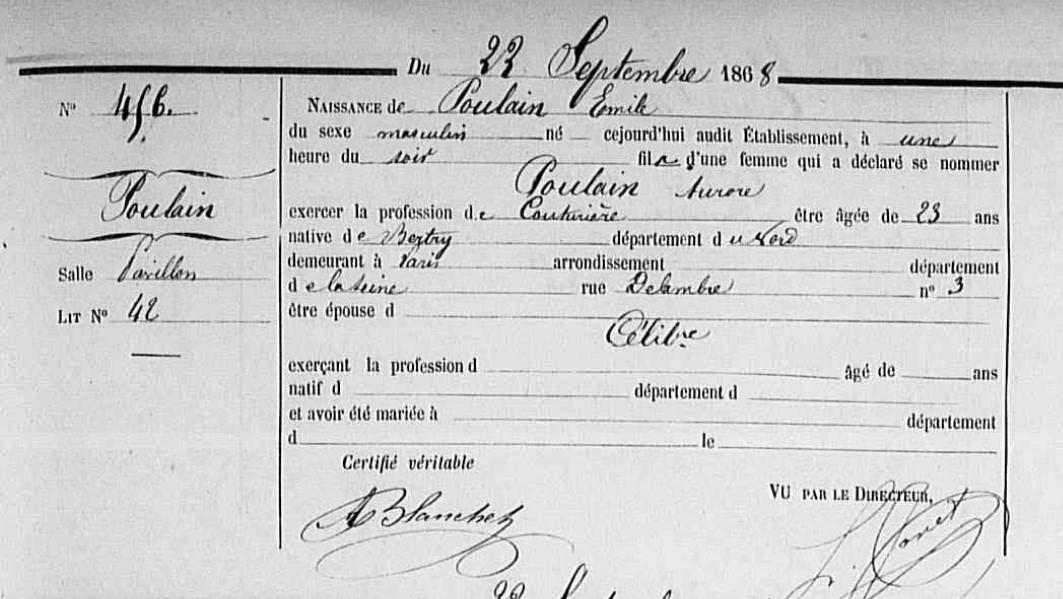 Du 22 Septembre 1868
N° 456.
Poulain
Salle Pavillon
LIT N° 42
NAISSANCE de Poulain Emile
du sexe masculin né cejourd'hui audit Établissement, à une
heure du soir fils d'une femme qui a déclaré se nommer
Poulain Aurore
exercer la profession de Couturière être âgée de 23 ans
native de Bertry département du Nord
demeurant à Paris arrondissement département
de la Seine rue Delambre n° 3
être épouse d
Célibre
exerçant la profession d âgé de ans
natif d département d
et avoir été mariée à département
d le
Certifié véritable
VU PAR LE DIRECTEUR,
A Blanchet
22 Septembre